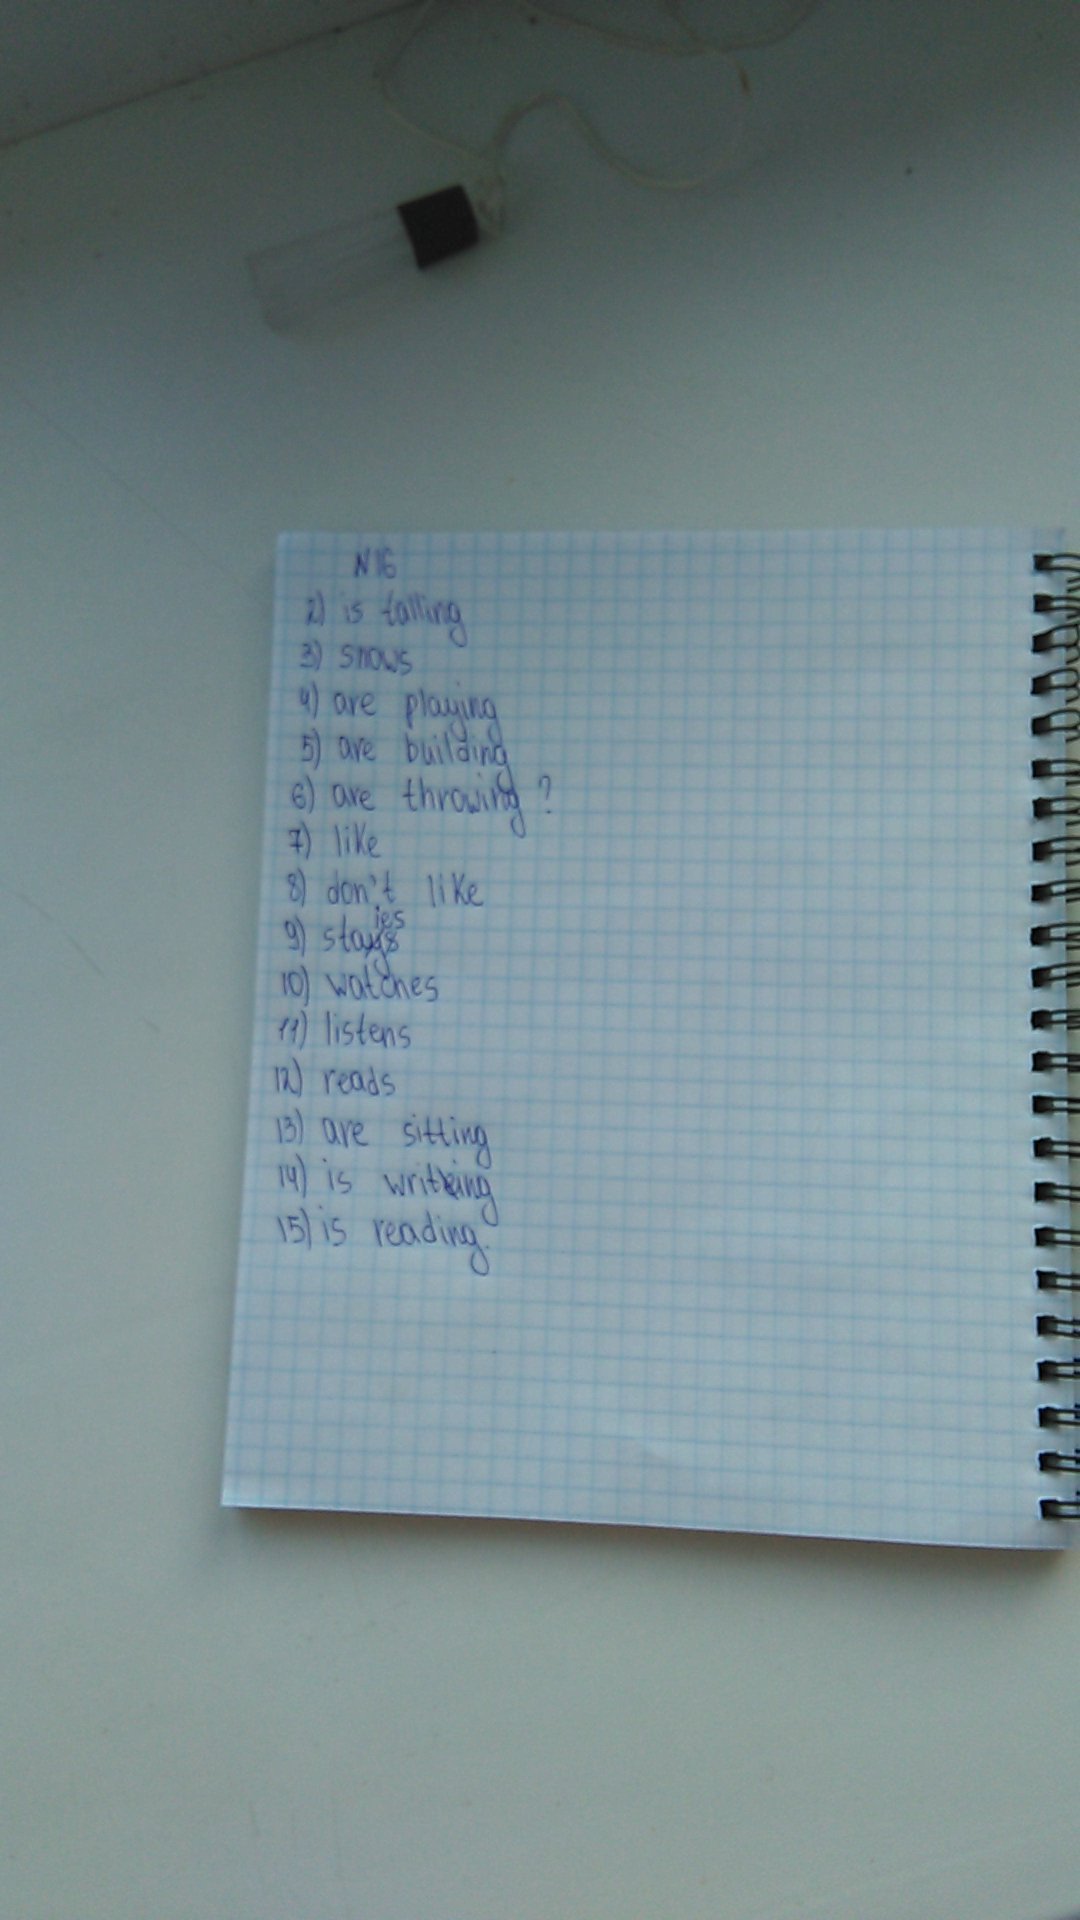 N16
2) is falling
3) snows
4) are playing
5) are building
6) are throwing ?
7) like
8) don't like
9) staies
10) watches
11) listens
12) reads
13) are sitting
14) is writing
15) is reading.